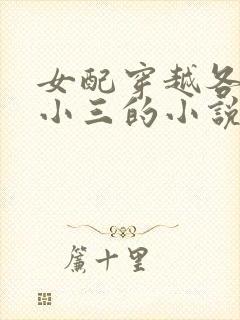 女配穿越各
小三的小说
簾十里